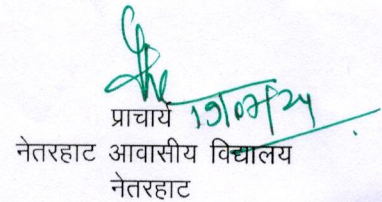 प्राचार्य 19/07/24
नेतरहाट आवासीय विद्यालय
नेतरहाट